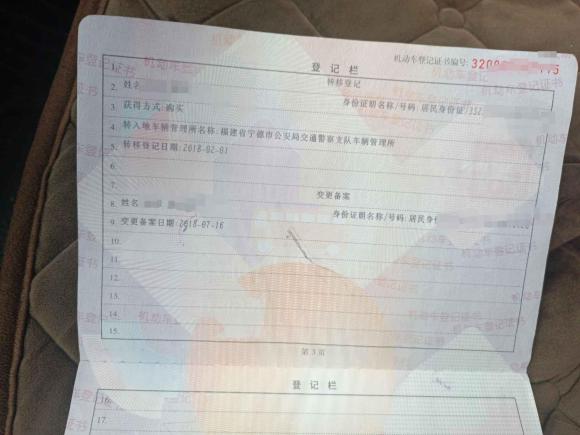 机动车登记证书编号: 3200
登记栏
1. 转移登记
2. 姓名
身份证明名称/号码: 居民身份证/352
3. 获得方式:购买
4. 转入地车辆管理所名称:福建省宁德市公安局交通警察支队车辆管理所
5. 转移登记日期:2018-02-01
6.
7. 变更备案
8. 姓名
身份证明名称/号码: 居民身份
9. 变更备案日期:2018-07-16
10.
11.
12.
13.
14.
15.
第3页
登记栏
16.
17.